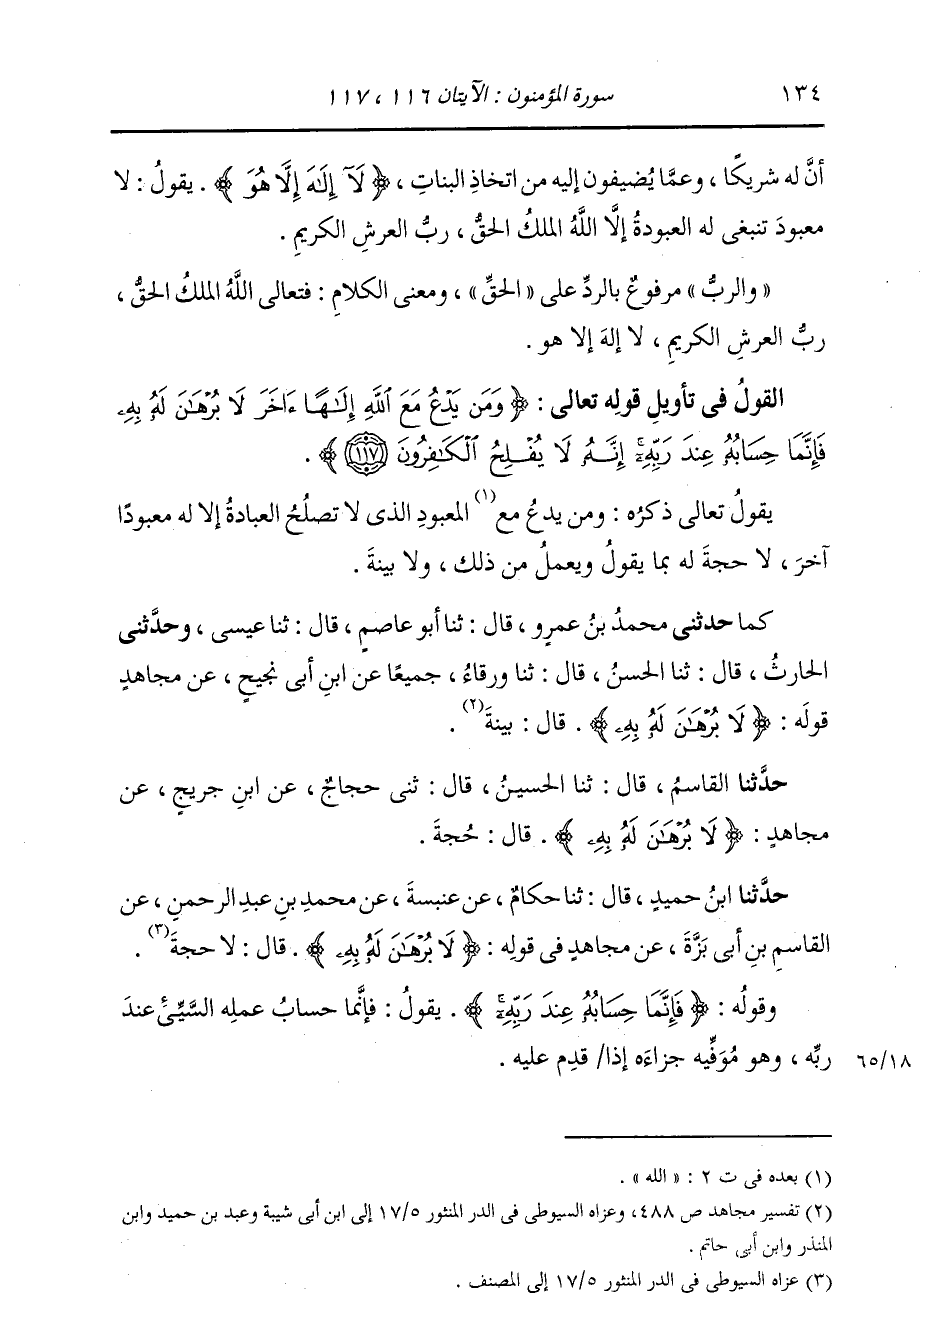 ١٣٤ سورة المؤمنون : الآيتان ١١٦ ، ١١٧
أنَّ له شريكًا ، وعمَّا يُضيفون إليه من اتخاذِ البناتِ ، ﴿ لَآ إِلَٰهَ إِلَّا هُوَ ﴾ . يقولُ : لا
معبودَ تنبغى له العبودةُ إلَّا اللَّهُ الملكُ الحقُّ ، ربُّ العرشِ الكريمِ .
« والربُّ » مرفوعٌ بالردِّ على « الحقِّ » ، ومعنى الكلامِ : فتعالى اللَّهُ الملكُ الحقُّ ،
ربُّ العرشِ الكريمِ ، لا إلهَ إلا هو .
القولُ فى تأويلِ قولِه تعالى : ﴿ وَمَن يَدْعُ مَعَ ٱللَّهِ إِلَٰهًا ءَاخَرَ لَا بُرْهَٰنَ لَهُۥ بِهِۦ
فَإِنَّمَا حِسَابُهُۥ عِندَ رَبِّهِۦٓ إِنَّهُۥ لَا يُفْلِحُ ٱلْكَٰفِرُونَ ١١٧ ﴾ .
يقولُ تعالى ذكرُه : ومن يدعُ مع(١) المعبودِ الذى لا تصلُحُ العبادةُ إلا له معبودًا
آخرَ ، لا حجةَ له بما يقولُ ويعملُ من ذلك ، ولا بينةَ .
كما حدثنى محمدُ بنُ عمرٍو ، قال : ثنا أبو عاصمٍ ، قال : ثنا عيسى ، وحدَّثنى
الحارثُ ، قال : ثنا الحسنُ ، قال : ثنا ورقاءُ ، جميعًا عن ابنِ أبى نجيحٍ ، عن مجاهدٍ
قولَه : ﴿ لَا بُرْهَٰنَ لَهُۥ بِهِۦ ﴾ . قال : بينةَ(٢) .
حدَّثنا القاسمُ ، قال : ثنا الحسينُ ، قال : ثنى حجاجٌ ، عن ابنِ جريجٍ ، عن
مجاهدٍ : ﴿ لَا بُرْهَٰنَ لَهُۥ بِهِۦ ﴾ . قال : حُجةَ .
حدَّثنا ابنُ حميدٍ ، قال : ثنا حكامٌ ، عن عنبسةَ ، عن محمدِ بنِ عبدِ الرحمنِ ، عن
القاسمِ بنِ أبى بَزَّةَ ، عن مجاهدٍ فى قولِه : ﴿ لَا بُرْهَٰنَ لَهُۥ بِهِۦ ﴾ . قال : لا حجةَ(٣) .
وقولُه : ﴿ فَإِنَّمَا حِسَابُهُۥ عِندَ رَبِّهِۦٓ ﴾ . يقولُ : فإنَّما حسابُ عملِه السَّيِّئُ عندَ
ربِّه ، وهو مُوَفِّيه جزاءَه إذا/ قدِم عليه . ٦٥/١٨
(١) بعده فى ت ٢ : « الله » .
(٢) تفسير مجاهد ص ٤٨٨، وعزاه السيوطى فى الدر المنثور ١٧/٥ إلى ابن أبى شيبة وعبد بن حميد وابن
المنذر وابن أبى حاتم .
(٣) عزاه السيوطى فى الدر المنثور ١٧/٥ إلى المصنف .